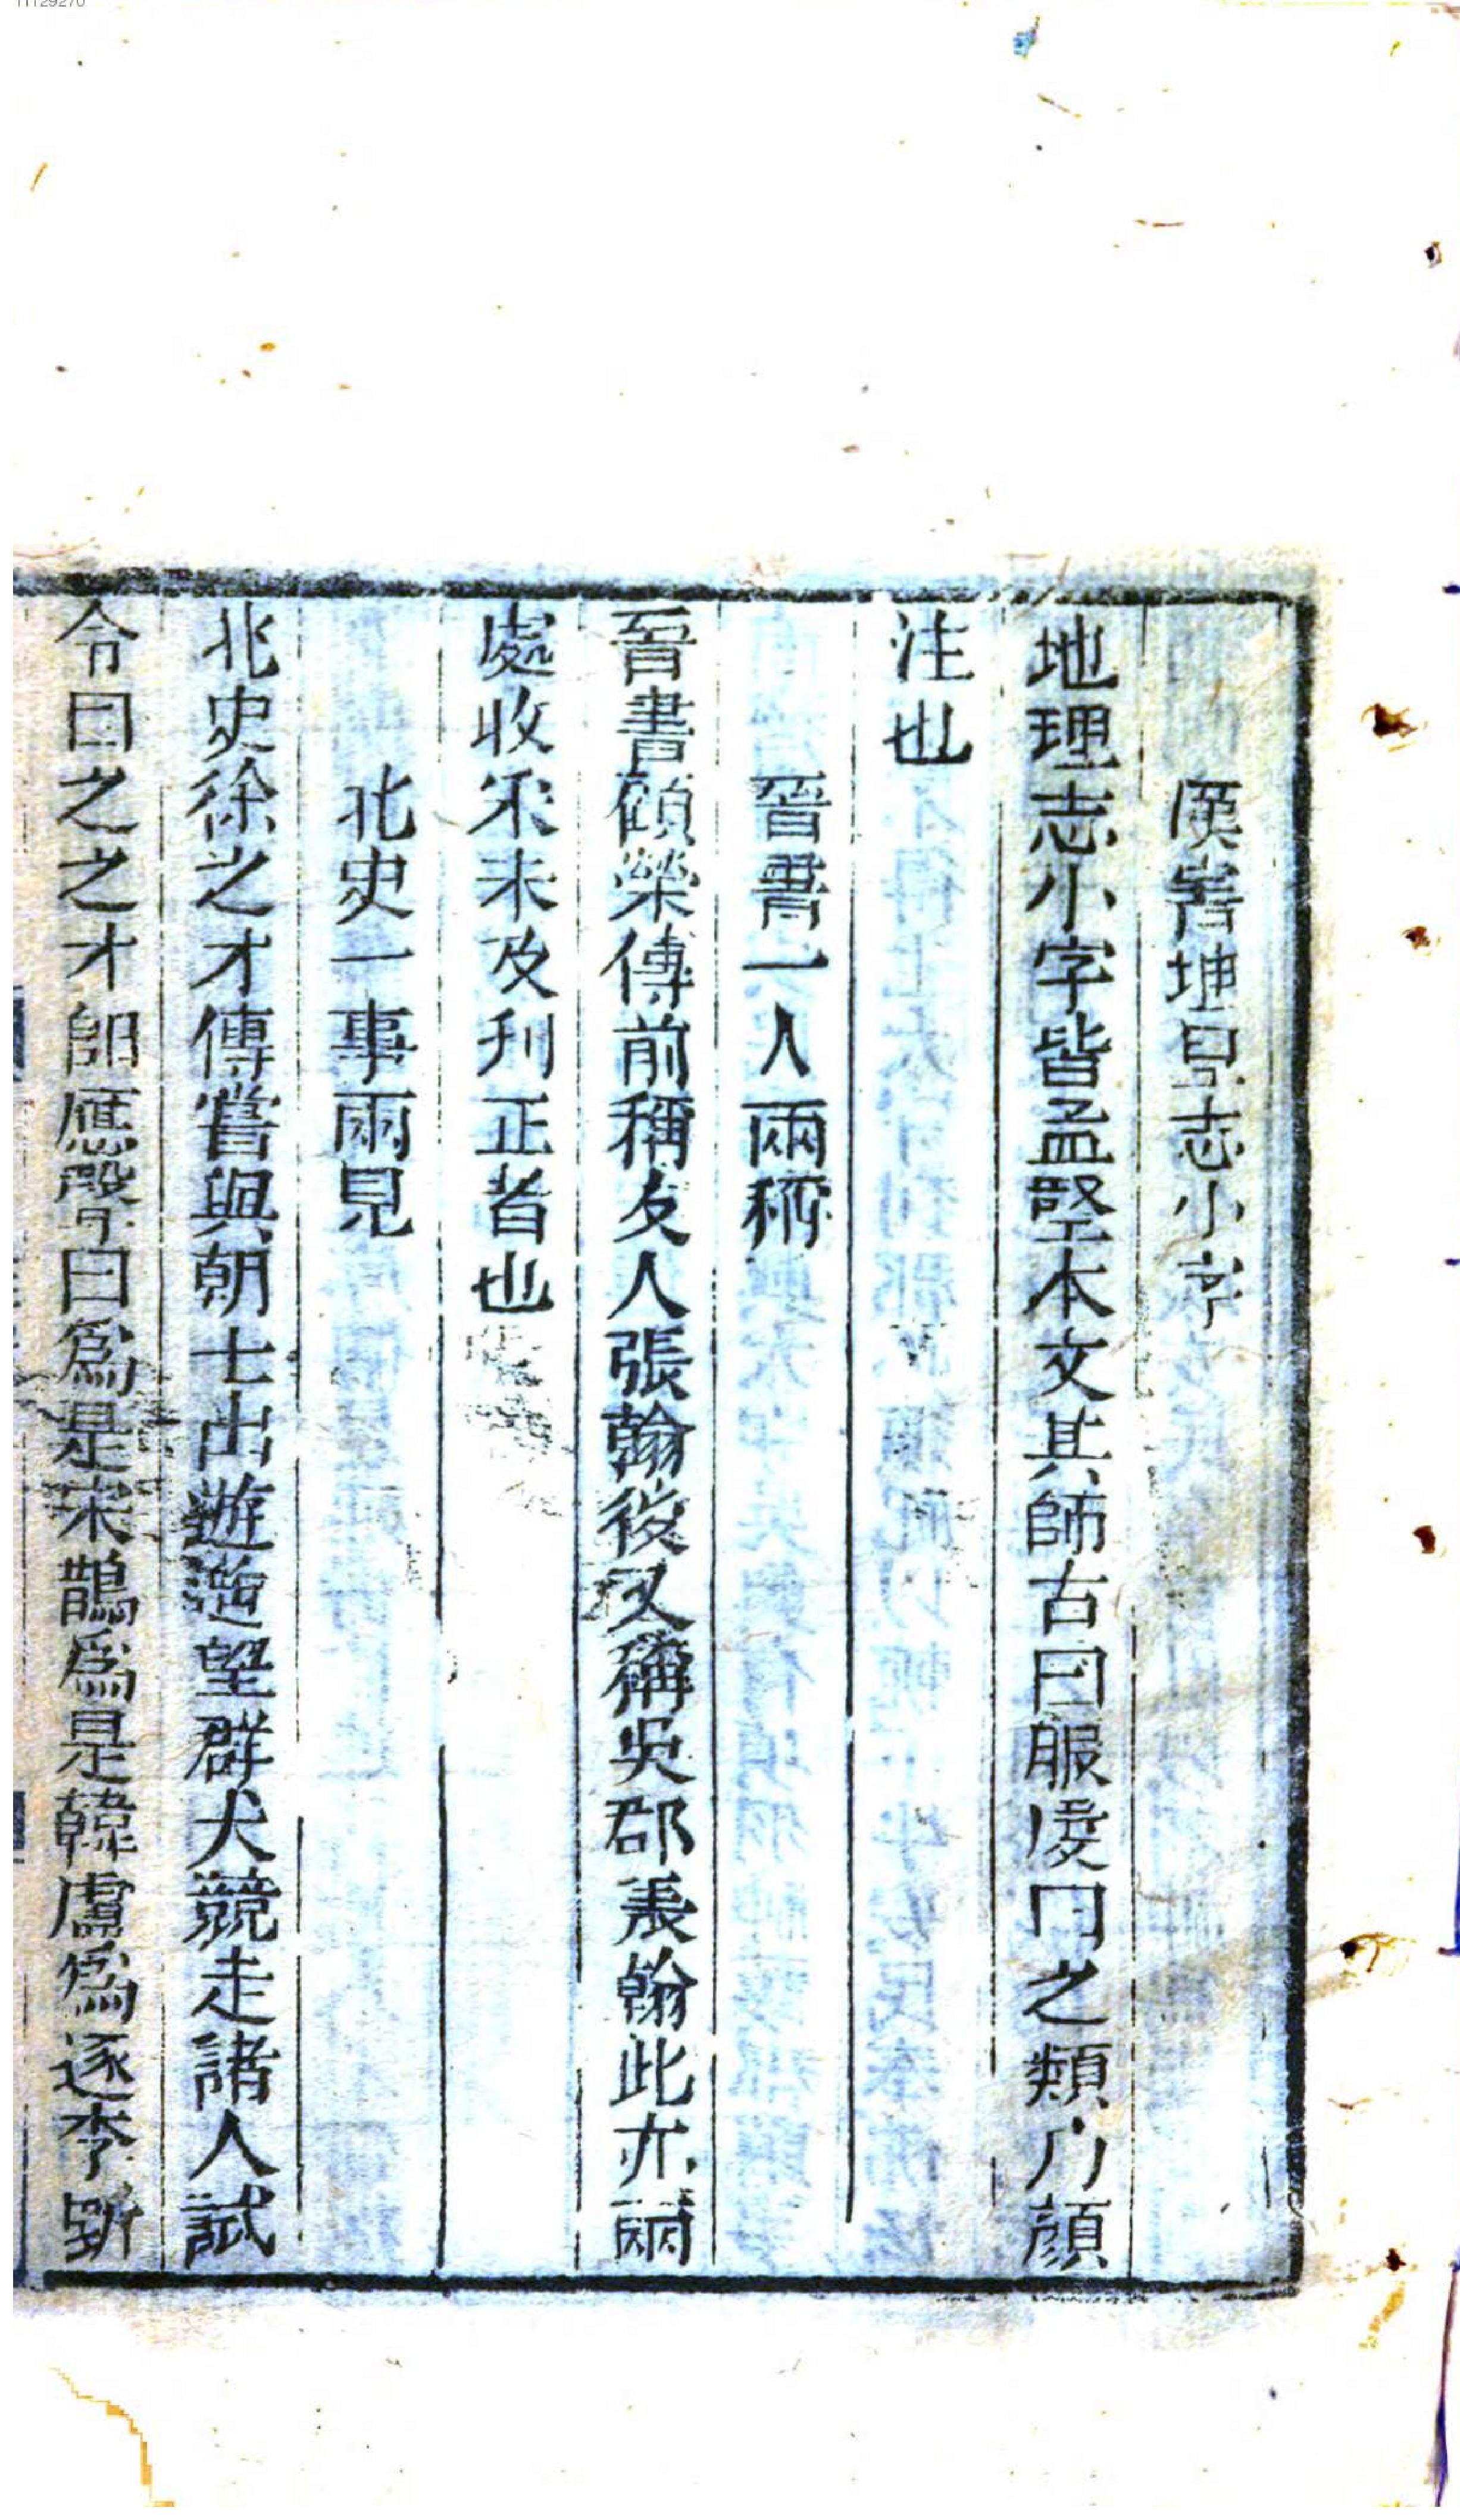 漢書地里志小字
地理志小字皆孟堅本文其師古曰服虔曰之類乃顔
注也
晉書一人兩稱
晉書顧榮傳前稱友人張翰後又稱吳郡張翰此亦兩
處收采未及刋正者也
北史一事兩見
北史徐之才傳嘗與朝士出遊遥望群犬競走諸人試
令目之之才卽應聲曰爲是宋鵲爲是韓盧爲逐李斯